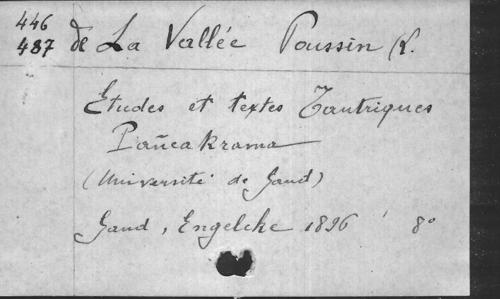 446
487 de La Vallée Poussin (L.
Etudes et textes Tantriques
Pañcakrama
(Université de Gand)
Gand, Engelcke 1896 8°